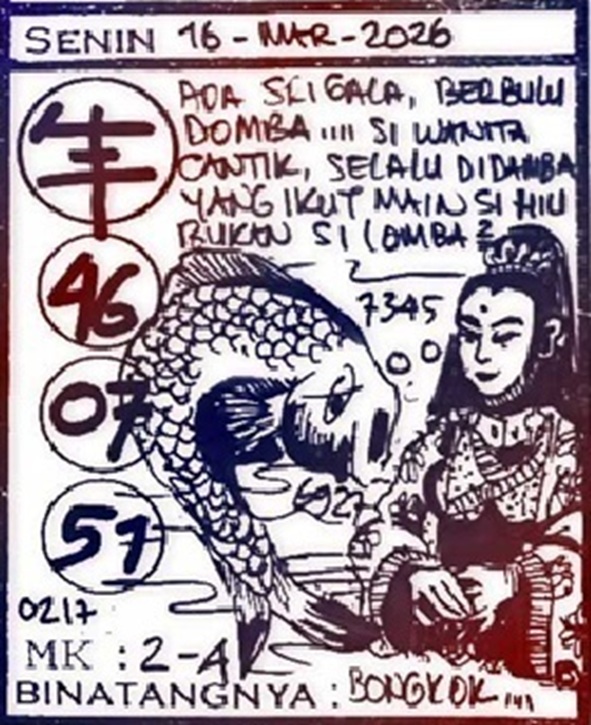 SENIN 16 - MAR - 2026
ADA SRIGALA, BERBULU
DOMBA .... SI WANITA
CANTIK, SELALU DIDAMBA
YANG IKUT MAIN SI HIU
BUKAN SI LOMBA 2
46
7345
07
6927
57
0217
MK : 2-4
BINATANGNYA : BONGKOK ....